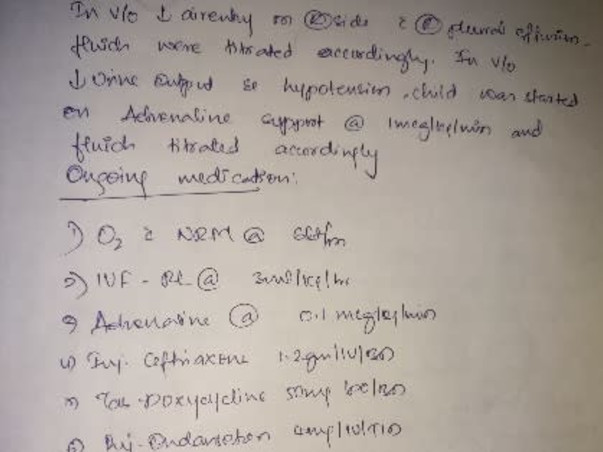 In v/o ↓ air entry on Ⓡ side c̄ Ⓡ pleural effusion.
fluids were titrated accordingly. In v/o
↓ Urine output hypotension, child was started
on Adrenaline support @ 1mcg/kg/min and
fluids titrated accordingly
Ongoing medication:
1) O2 c̄ NRM @
2) IVF - RL @ 3ml/kg/hr
3) Adrenaline @ 0.1 mcg/kg/min
4) Inj. Ceftriaxone 1.2gm/IV/BD
5) Tab. Doxycycline 50mg BD
6) Inj. Ondansetron 4mg/IV/